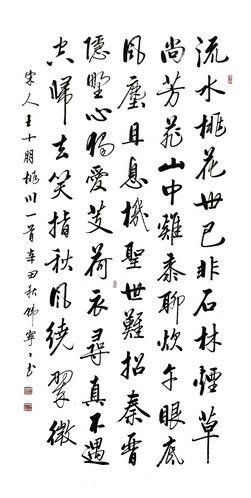 流水桃花世已非石林煙草
尚芳菲山中雞黍聊炊午眼底
風塵且息機聖世難招秦晉
隱野心獨愛芰荷衣尋真不遇
空歸去笑指秋風繞翠微
宋人王十朋桃川一首辛丑秋